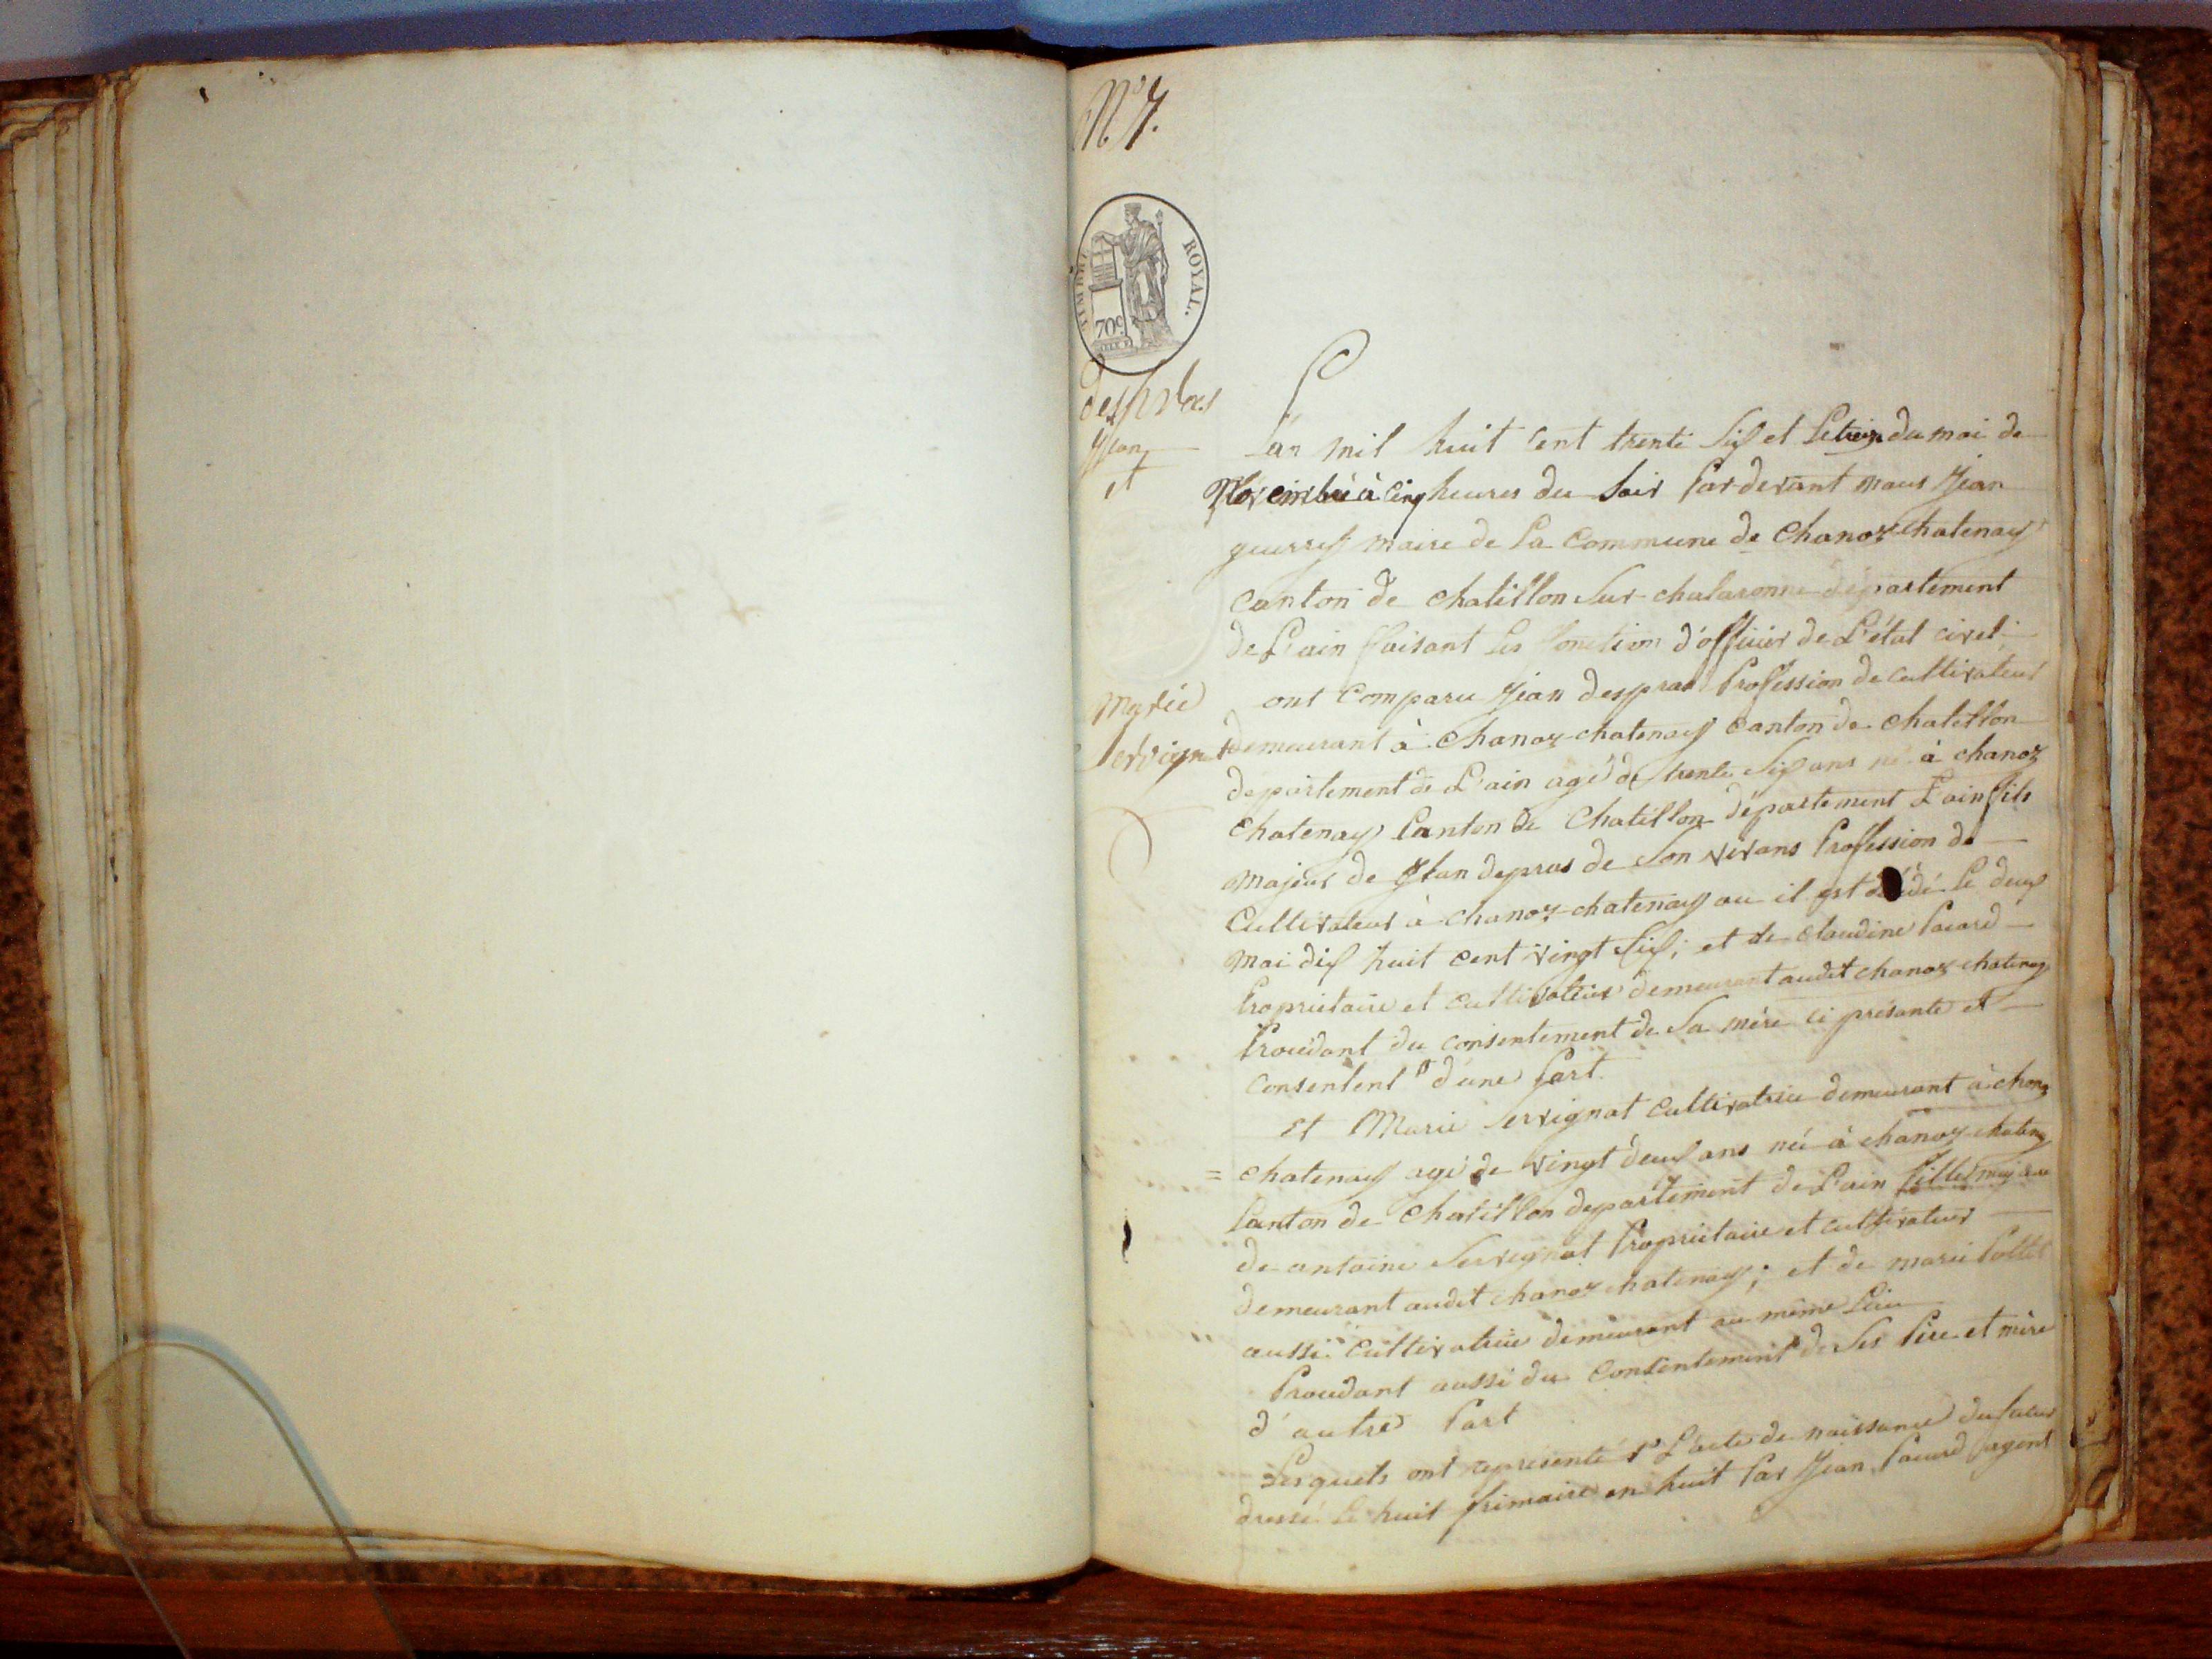 N.° 7.
TIMBRE ROYAL.
70c.
despras
Jean
et
Marie
servignat
L'an mil huit cent trente six et le treize du moi de
Novembre à cinq heures du soir par devant nous Jean
maire de la Commune de Chanoz chatenay
Canton de chatillon sur chalaronne département
de L'ain faisant les fonction d'officier de L'état civel
ont comparu Jean despras Profession de cultivateur
demeurant à chanoz chatenay canton de chatillon
departement de L'ain agé de trente six ans né à chanoz
chatenay Canton de chatillon département L'ain fils
majeur de Jean depras de son vivans Profession de
Cultivateur à chanoz chatenay ou il est décédé le deux
mai dix huit cent vingt six; et de claudine Pacard
Propriétaire et cultivateur demeurant audit chanoz chatenay
Procédant du consentement de sa mère ci présante et
consentent d'une part.
et Marie servignat cultivatrice demeurant à chanoz
= chatenay agé de vingt deux ans née à chanoz chatenay
Canton de chatillon departement de L'ain fille majeur
de antoine servignat Propriétaire et cultivateur
demeurant audit chanoz chatenay; et de marie Pollet
aussi cultivatrice demeurant au même lieu
Procédant aussi du consentement de ses Père et mère
d'autre Part
Lesquels ont représenté 1° L'acte de naissance du futur
dressé le huit frimaire an huit Par Jean Pacard agent